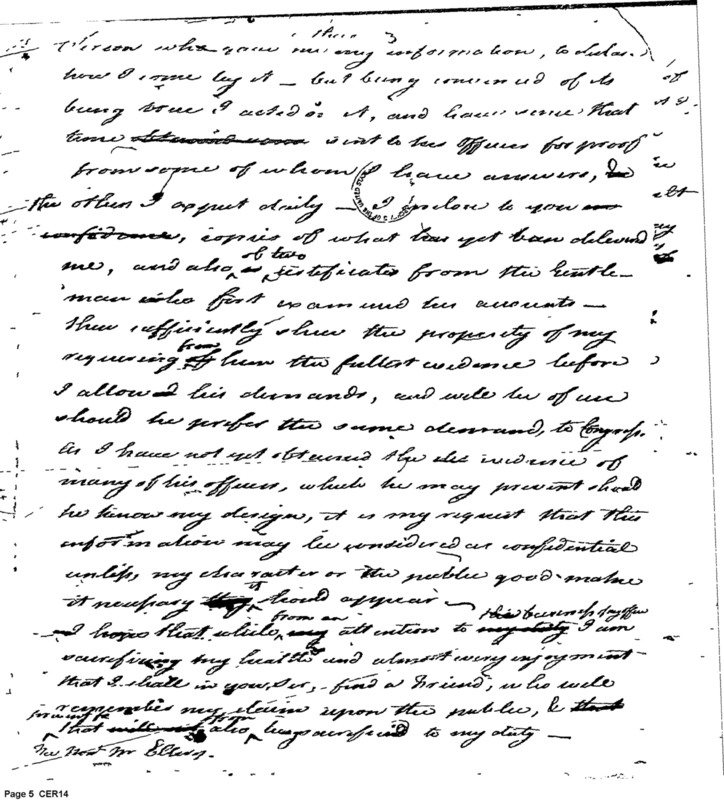 there
Person who gave me my information, to declare
how I came by it — but being convinced of its
being true I acted on it, and have since that
time sent to his officers for proof
from some of whom I have answers,
the others I expect daily — I inclose to you
confidence, copies of what has yet been delivered
of two
me, and also certificates from the Gentle-
man who first examined his accounts —
they sufficiently shew the propriety of my
from
requiring of him the fullest evidence before
I allowed his demands, and will be of use
should he prefer the same demand, to Congress.
As I have not yet obtained the evidence of
many of his officers, which he may prevent should
he know my design, it is my request that this
information may be considered as confidential
unless, my character or the public good make
it
it necessary they should appear —
from an this business of my office
I hope that while my attention to my duty I am
sacrificing my health and almost every enjoyment
that I shall in you, Sir, find a Friend, who will
remember my claim upon the public, & that
prevent from
that will not also being sacrificed to my duty —
The Honr. Mr Ellery.
Page 5 CER14